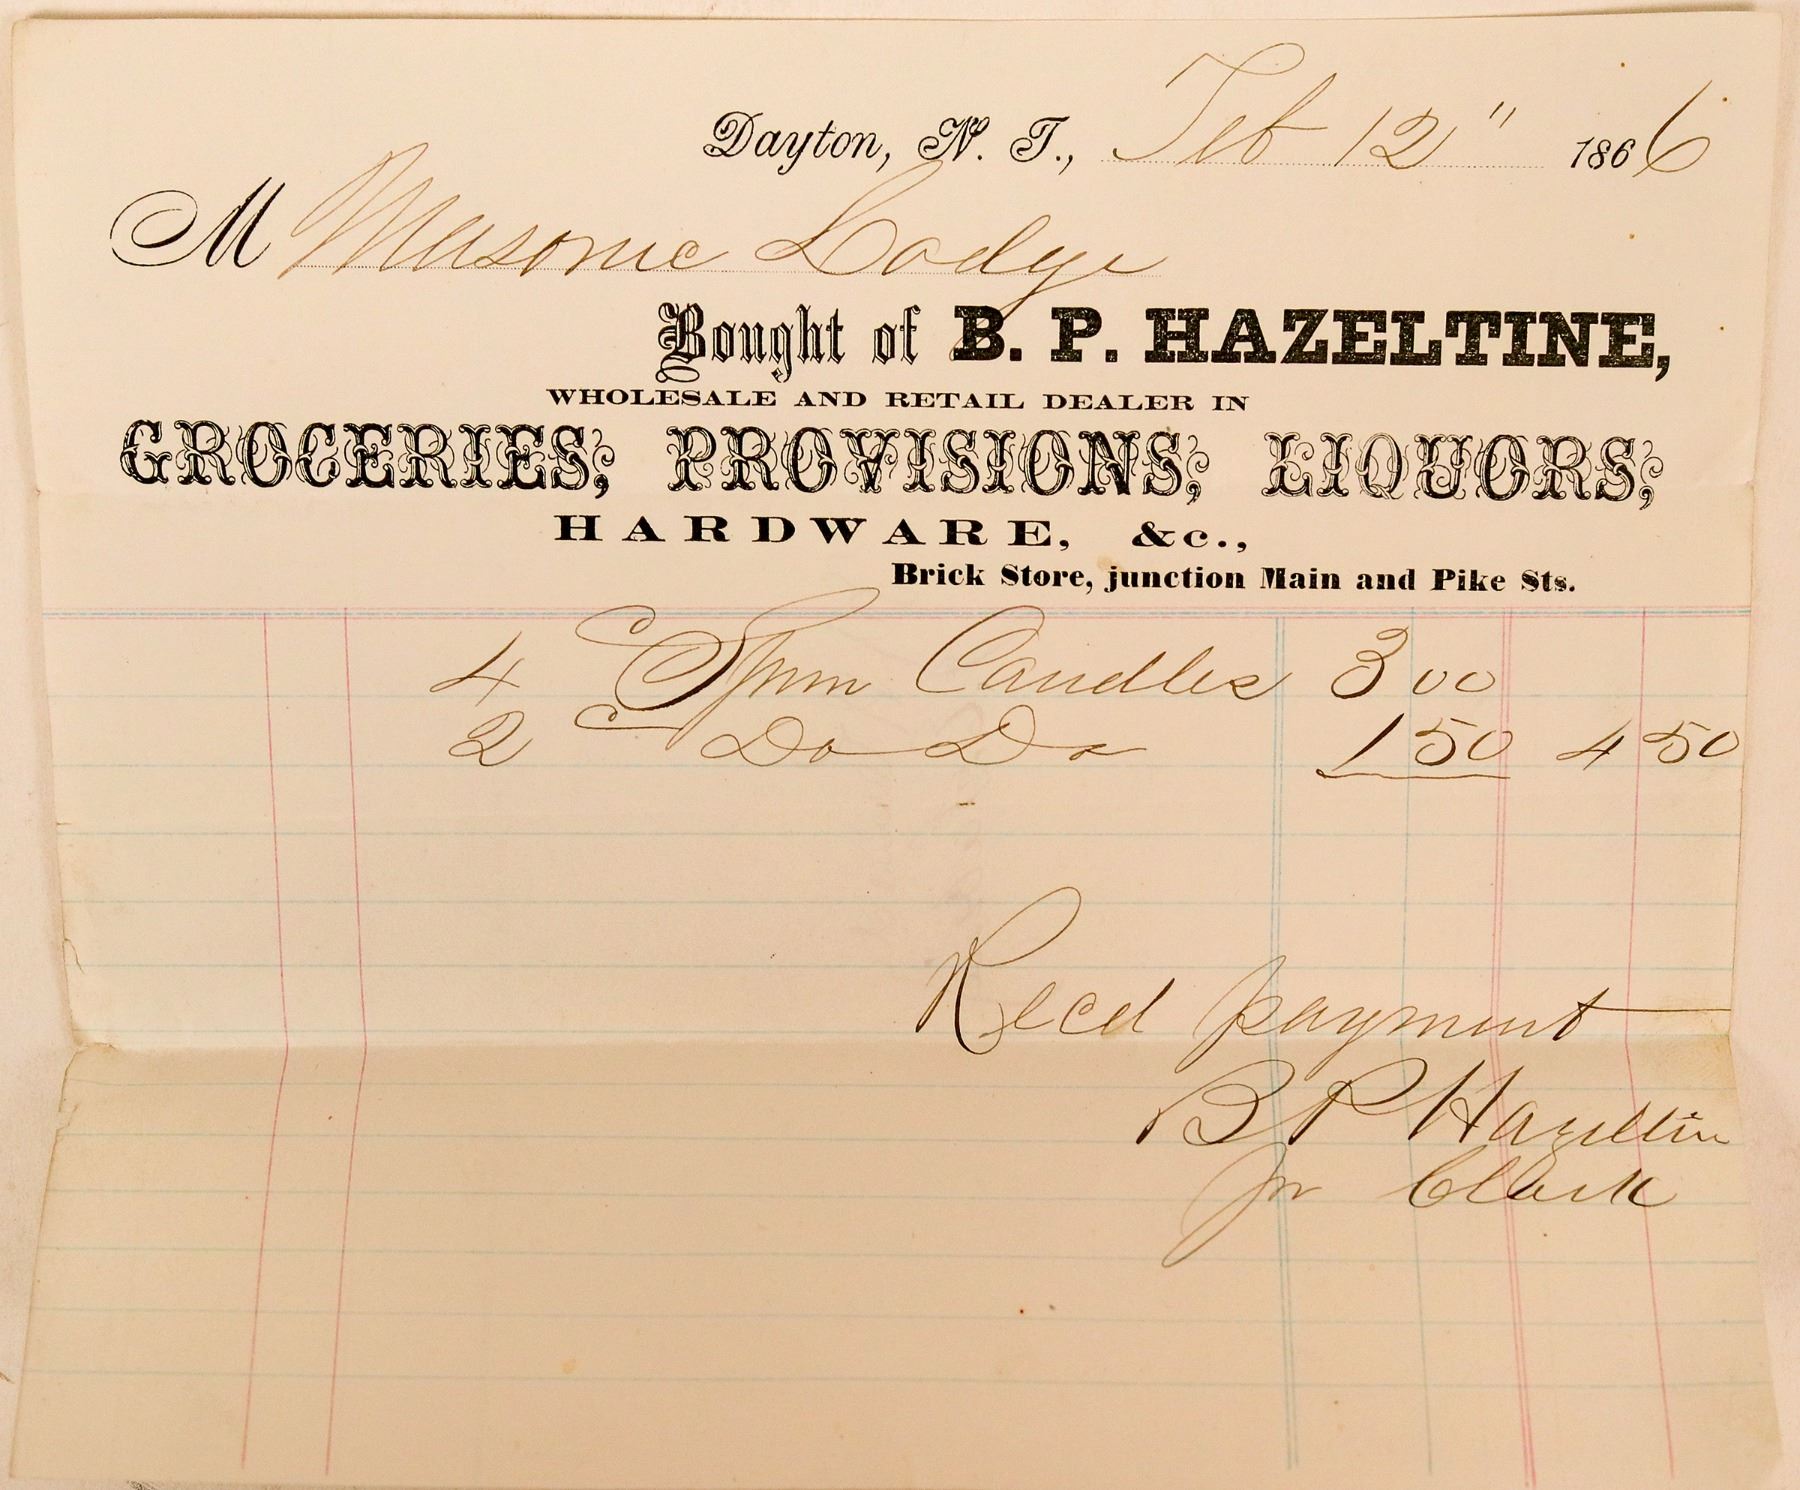 Dayton, N. T., Feb 12" 1866
M Masonic Lodge
Bought of B. P. HAZELTINE,
WHOLESALE AND RETAIL DEALER IN
GROCERIES, PROVISIONS, LIQUORS,
HARDWARE, &c.,
Brick Store, junction Main and Pike Sts.
4 Sperm Candles 3 00
2 Do Do 1 50 4 50
Recd payment
B P Hazeltine
Clark